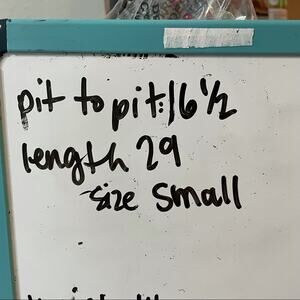 pit to pit: 16 1/2
length 29
~size small